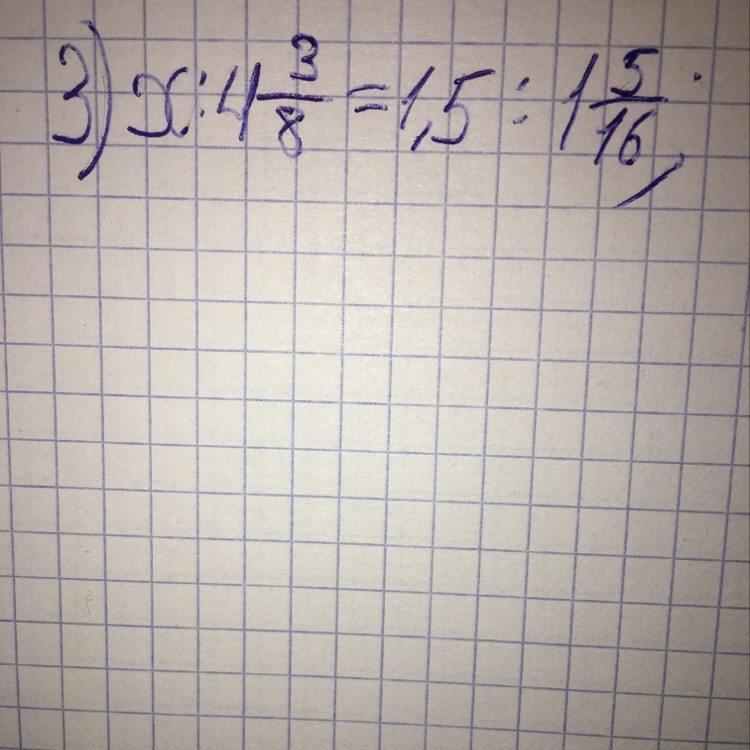 3) x : 4 3/8 = 1,5 : 1 5/16;